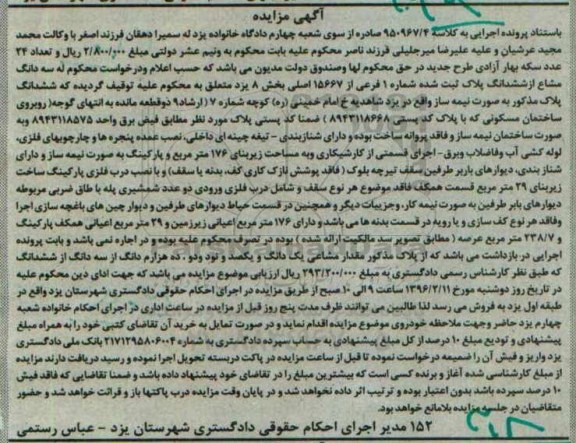 آگهی مزایده
باستناد پرونده اجرایی به کلاسه ۹۵۰۹۶۷/۴ صادره از سوی شعبه چهارم دادگاه خانواده یزد له سمیرا دهقان فرزند اصغر با وکالت محمد
مجید عرشیان و علیه علیرضا میرجلیلی فرزند ناصر محکوم علیه بابت محکوم به ونیم عشر دولتی مبلغ ۲/۸۰۰/۰۰۰ ریال و تعداد ۲۴
عدد سکه بهار آزادی طرح جدید در حق محکوم لها وصندوق دولت مدیون می باشد که حسب اعلام ودرخواست محکوم له سه دانگ
مشاع ازششدانگ پلاک ثبت شده شماره ۱ فرعی از ۱۵۶۶۷ اصلی بخش ۸ یزد متعلق به محکوم علیه توقیف گردیده که ششدانگ
پلاک مذکور به صورت نیمه ساز واقع در یزد شاهدیه خ امام خمینی (ره) کوچه شماره ۷ (ارشاد۹ دوقطعه مانده به انتهای گوجه( روبروی
ساختمان مسکونی که با پلاک کد پستی ۸۹۴۳۱۱۸۶۶۸ ) ضمنا کد پستی پلاک مورد نظر مطابق فیش برق واحد ۸۹۴۳۱۱۸۵۷۵ وبه
صورت ساختمان نیمه ساز و فاقد پروانه ساخت بوده و دارای شنازبندی - تیغه چینه ای داخلی، نصب عمده پنجره ها و چارچوبهای فلزی،
لوله کشی آب وفاضلاب وبرق - اجرای قسمتی از کارشیکاری وبه مساحت زیربنای ۱۷۶ متر مربع و پارکینگ به صورت نیمه ساز و دارای
شناز بندی، دیوارهای باربر طرفین سقف تیرچه بلوک ( فاقد پوشش نازک کاری کف، بدنه یا سقف) و با نصب درب فلزی پارکینگ ساخت
زیربنای ۲۹ متر مربع قسمت همکف فاقد موضوع هر نوع سقف و شامل درب فلزی ورودی دو عدد شمشیری پله با طاق ضربی مربوطه
دیوارهای بابر طرفین به صورت نیمه کار، وجزییات دیگر و همچنین در قسمت حیاط دیوارهای طرفین و دیوار چین های باغچه سازی اجرا
وفاقد هر نوع کف سازی و یا رویه در قسمت بدنه ها می باشد و دارای ۱۷۶ متر مربع اعیانی زیرزمین و ۲۹ متر مربع اعیانی همکف پارکینگ
و ۲۳۸/۷ متر مربع عرصه ( مطابق تصویر سند مالکیت ارائه شده ) بوده در تصرف محکوم علیه بوده و در اجاره نمی باشد و بابت پرونده
اجرایی در بازداشت می باشد که از پلاک مذکور مقدار مشاعی یک دانگ و یکصد و نود ودو ، ده هزارم دانگ از سه دانگ از ششدانگ
که طبق نظر کارشناس رسمی دادگستری به مبلغ ۲۹۳/۲۰۰/۰۰۰ ریال ارزیابی موضوع مزایده می باشد که جهت ادای دین محکوم علیه
در تاریخ روز دوشنبه مورخ ۱۳۹۶/۲/۱۱ ساعت ۹ الی ۱۰ صبح از طریق مزایده در اجرای احکام حقوقی دادگستری شهرستان یزد واقع در
طبقه اول یزد به فروش می رسد لذا طالبین می توانند ظرف مدت پنج روز قبل از مزایده در ساعت اداری در اجرای احکام خانواده شعبه
چهارم یزد حاضر وجهت ملاحظه خودروی موضوع مزایده اقدام نماید و در صورت تمایل به خرید آن تقاضای کتبی خود را به همراه مبلغ
پیشنهادی و تودیع مبلغ ۱۰ درصد از کل مبلغ پیشنهادی به حساب سپرده دادگستری به شماره ۲۱۷۱۲۹۵۸۰۶۰۰۴ بانک ملی دادگستری
یزد واریز و فیش آن را ضمیمه درخواست نموده تا قبل از ساعت مزایده در پاکت دربسته تحویل اجرا نموده و رسید دریافت دارند مزایده
از مبلغ کارشناسی شده آغاز و برنده کسی است که بیشترین مبلغ را در تقاضای خود پیشنهاد داده باشد و ضمنا تقاضایی که فاقد فیش
۱۰ درصد سپرده باشد بدون اعتبار بوده و ترتیب اثر داده نخواهد شد و در پایان وقت مزایده درب پاکتها باز و قرائت خواهد شد و حضور
متقاضیان در جلسه مزایده بلامانع خواهد بود.
۱۵۲ مدیر اجرای احکام حقوقی دادگستری شهرستان یزد - عباس رستمی